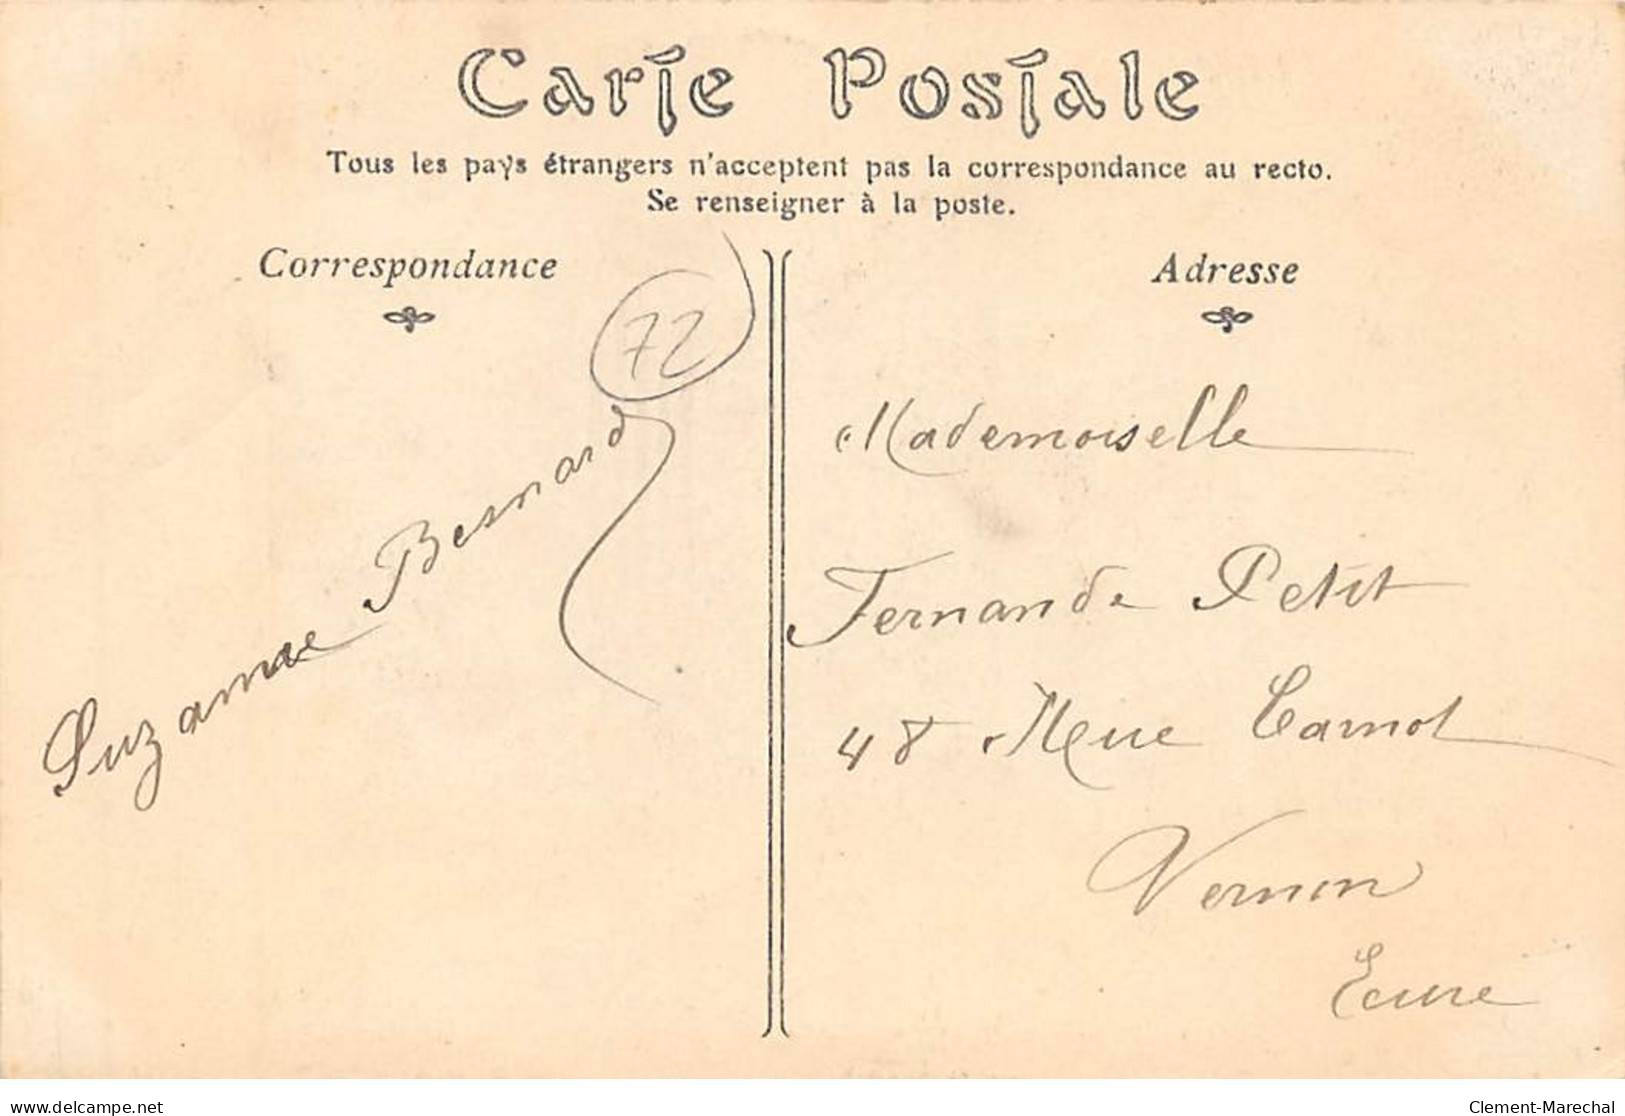 Carte Postale
Tous les pays étrangers n'acceptent pas la correspondance au recto.
Se renseigner à la poste.
Correspondance
Adresse
72
Suzanne Besnard
Mademoiselle
Fernande Petit
48 Rue Carnot
Vernon
Eure
delcampe.net
Clement-Marechal